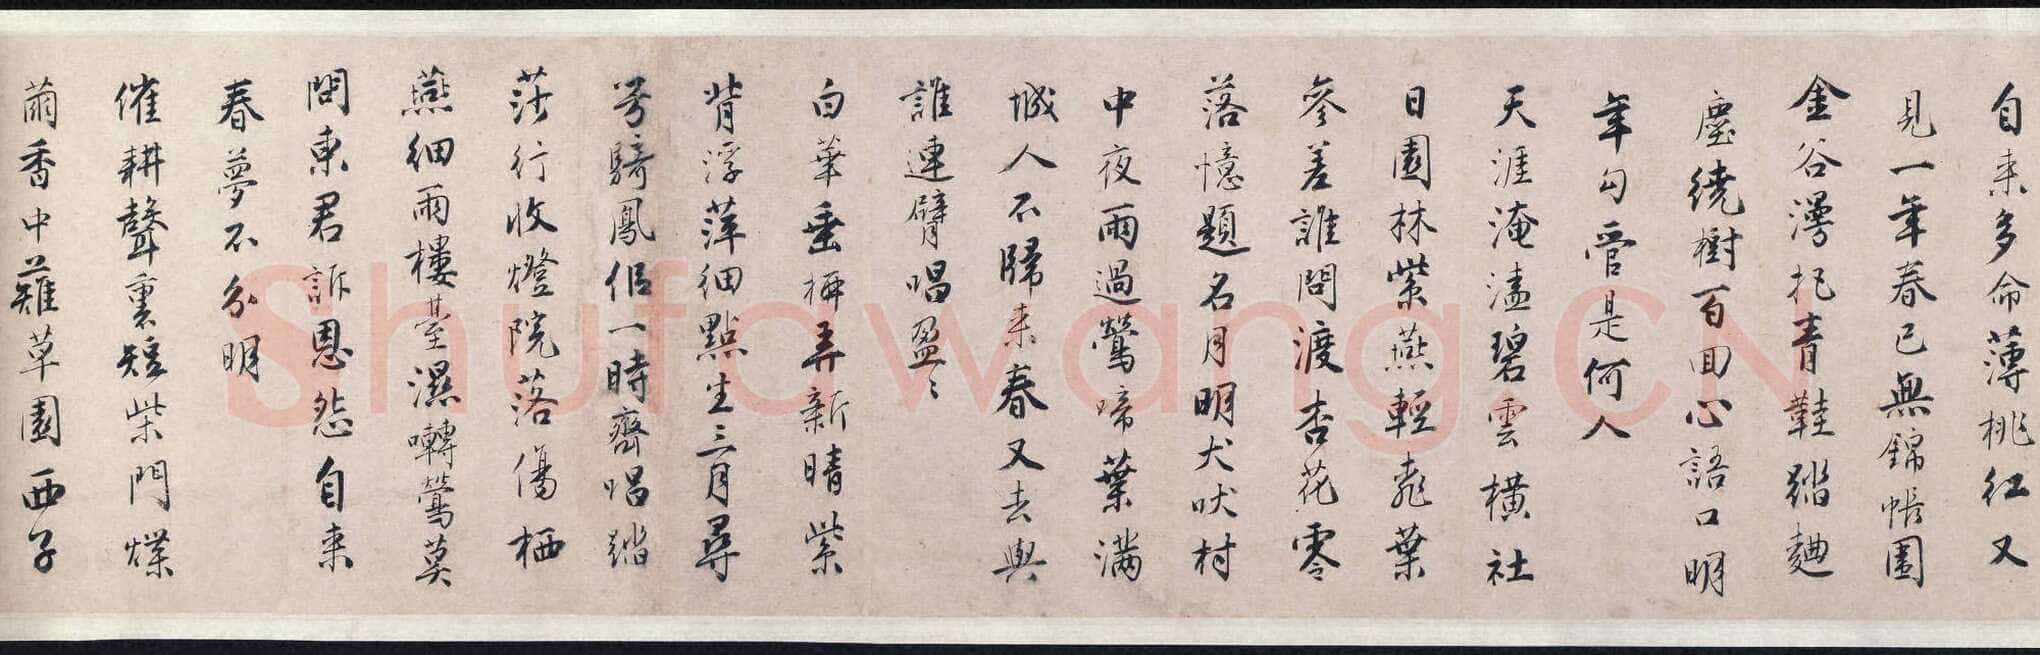 自来多命薄桃红又
見一年春已無錦帳圍
金谷漫把青鞋踏麯
塵繞樹百回心語口明
年勾管是何人
天涯淹溘碧雲橫社
日園林紫燕輕桃葉
參差誰問渡杏花零
落憶題名月明犬吠村
中夜雨過鶯啼葉滿
城人不歸来春又去與
誰連臂唱盈〻
白華垂柳弄新晴紫
背浮萍細點生三月尋
芳騎鳳侶一時齊唱踏
莎行收燈院落傷栖
燕細雨樓臺濕囀鶯莫
問東君訴恩怨自来
春夢不分明
催耕聲裏短柴門煠
繭香中薙草園西子
Shufawang.CN